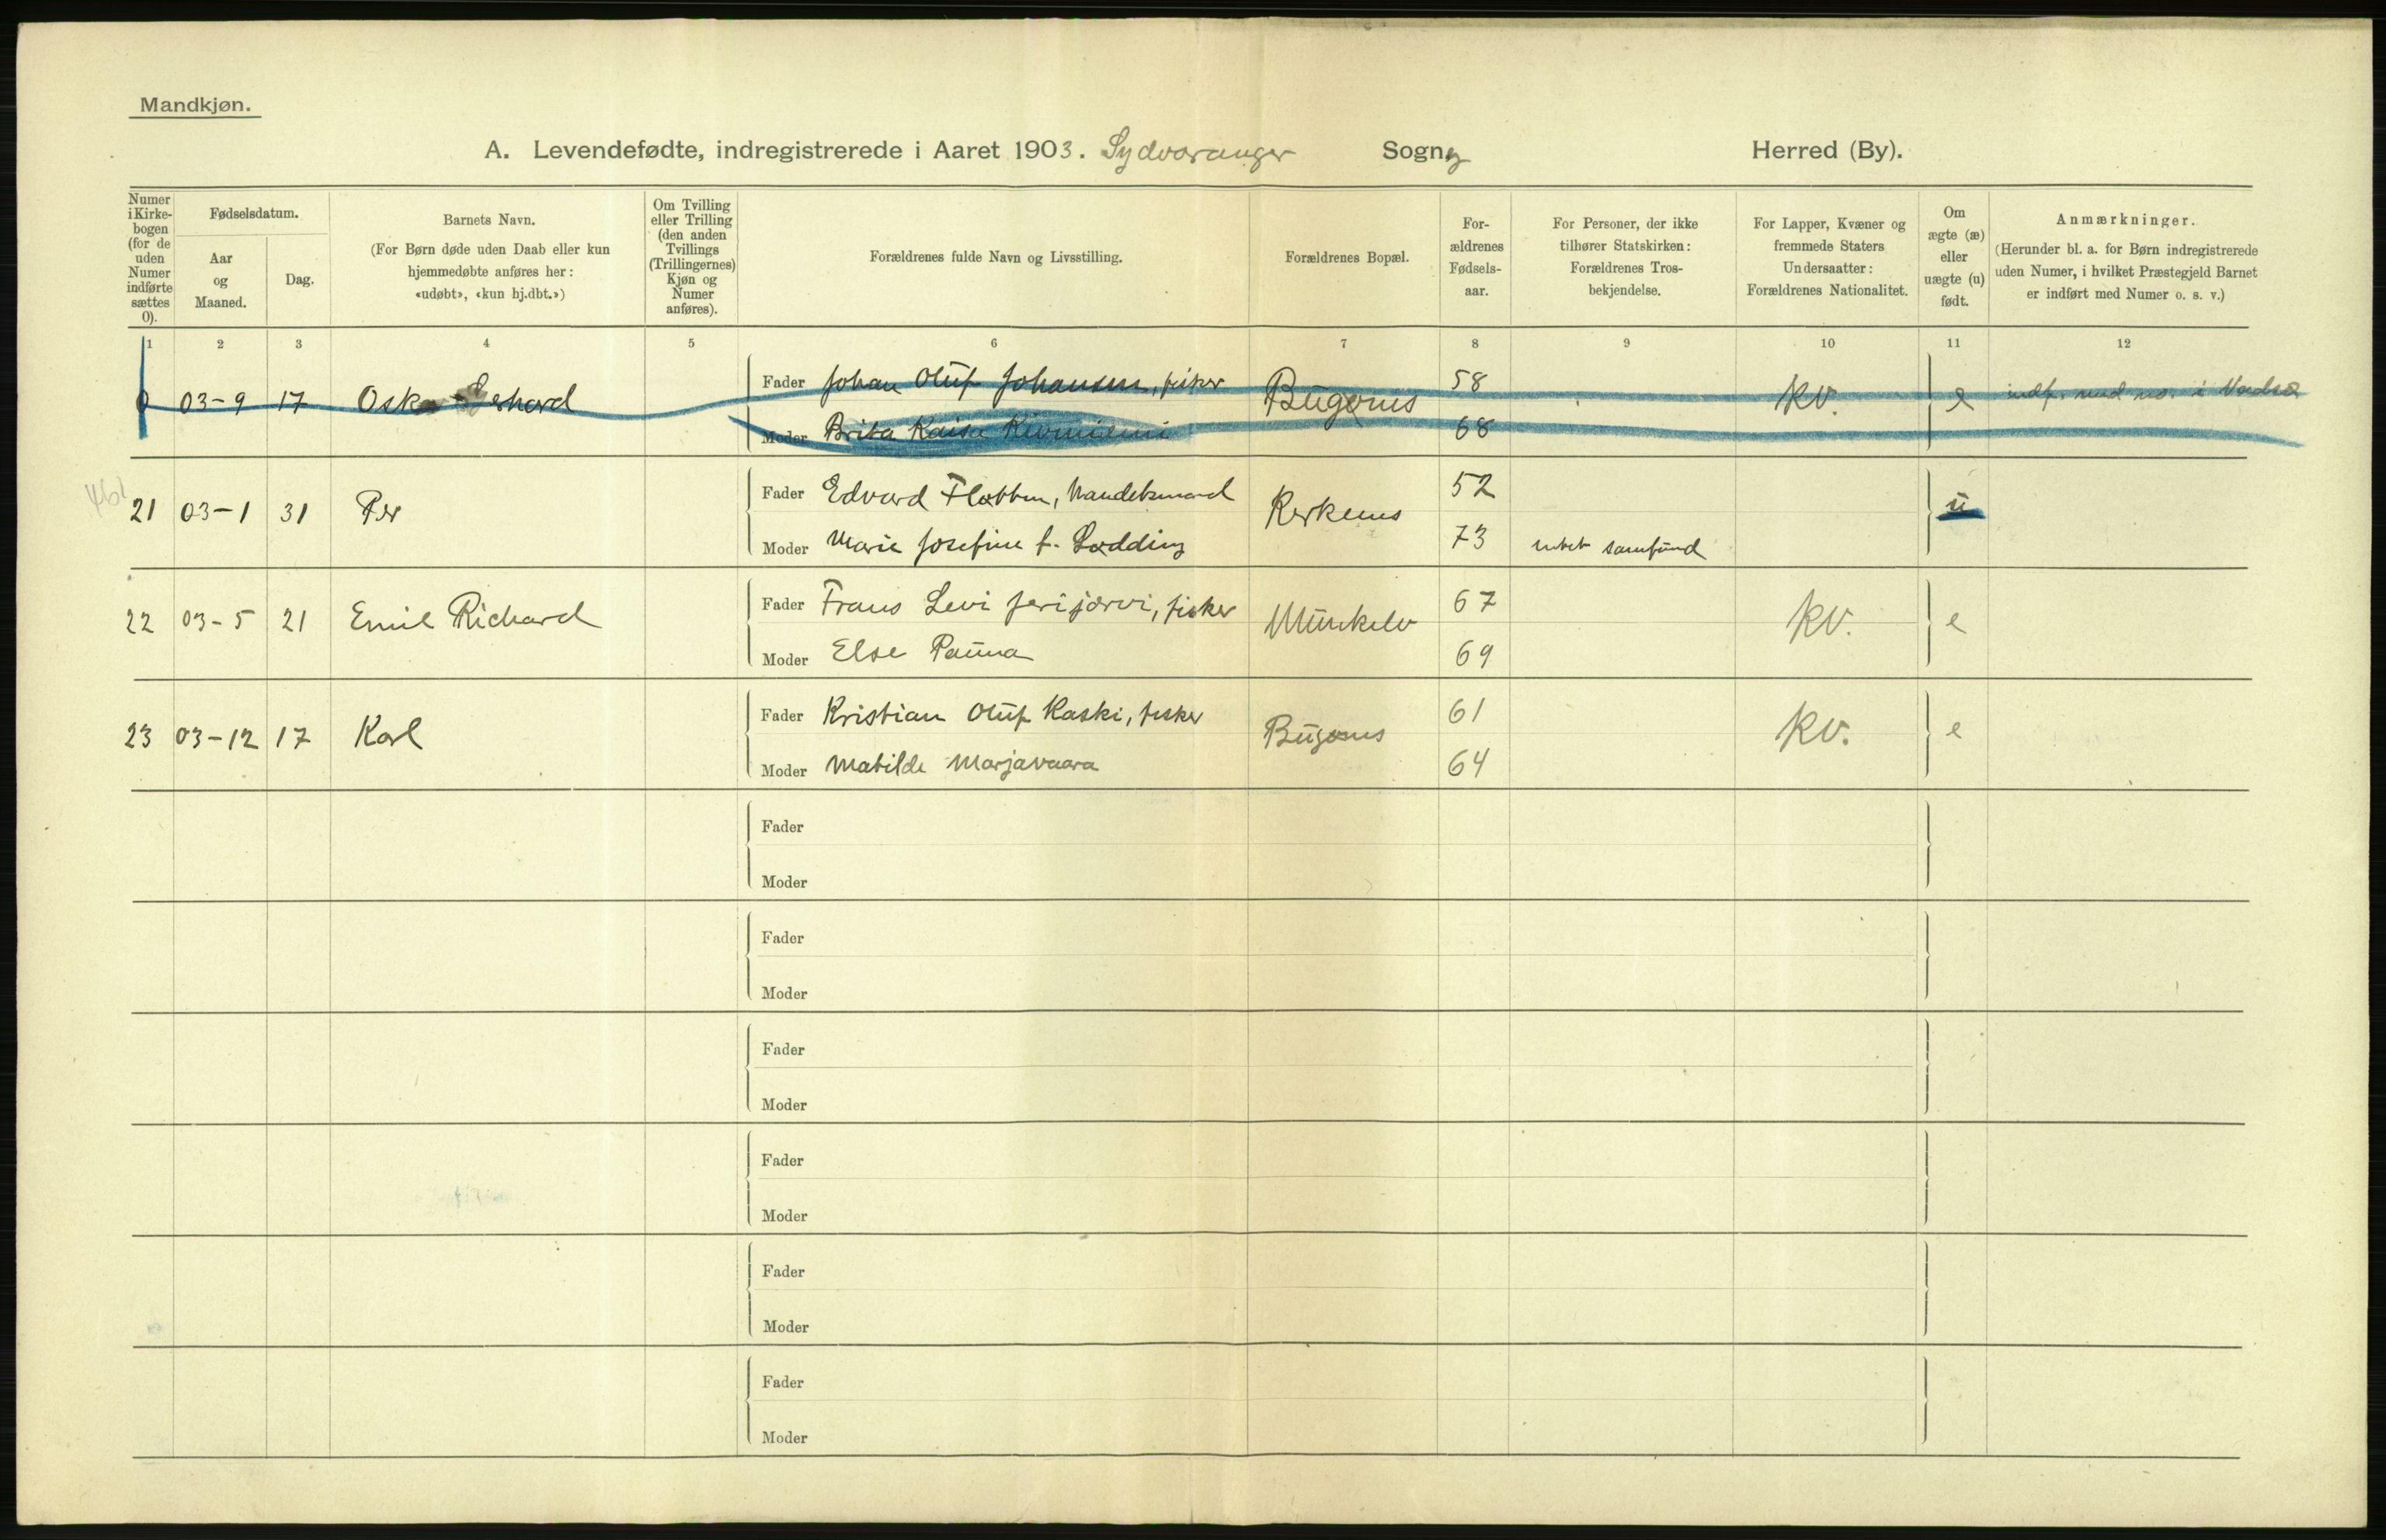 Mandkjøn.
A. Levendefødte, indregistrerede i Aaret 1903. Sydvaranger Sogn og Herred (By).
Numer i Kirke-bogen (for de uden Numer indførte sættes 0).
Fødselsdatum.
Aar og Maaned.
Dag.
Barnets Navn.
(For Børn døde uden Daab eller kun hjemmedøbte anføres her: «udøbt», «kun hj.dbt.»)
Om Tvilling eller Trilling (den anden Tvillings (Trillingernes) Kjøn og Numer anføres).
Forældrenes fulde Navn og Livsstilling.
Forældrenes Bopæl.
For-ældrenes Fødsels-aar.
For Personer, der ikke tilhører Statskirken: Forældrenes Tros-bekjendelse.
For Lapper, Kvæner og fremmede Staters Undersaatter: Forældrenes Nationalitet.
Om ægte (æ) eller uægte (u) født.
Anmærkninger.
(Herunder bl. a. for Børn indregistrerede uden Numer, i hvilket Præstegjeld Barnet er indført med Numer o. s. v.)
1 2 3 4 5 6 7 8 9 10 11 12
0 03-9 17 Fader Johan Oluf Johansen, fisker Bugønes 58 kv. e indf. med no. i Vadsø
Moder Brita Kaisa 68
461
21 03-1 31 Per Fader Edvard Flotten, Handelsmand Kerkenes 52 u
Moder Marie Josefine f. Lodding 73 samfund
22 03-5 21 Emil Richard Fader Frans Levi Jerijærvi, fisker Munkelv 67 kv. e
Moder Else Pauna 69
23 03-12 17 Karl Fader Kristian Oluf Kaski, fisker Bugønes 61 kv. e
Moder Matilde Marjavaara 64
Fader
Moder
Fader
Moder
Fader
Moder
Fader
Moder
Fader
Moder
Fader
Moder